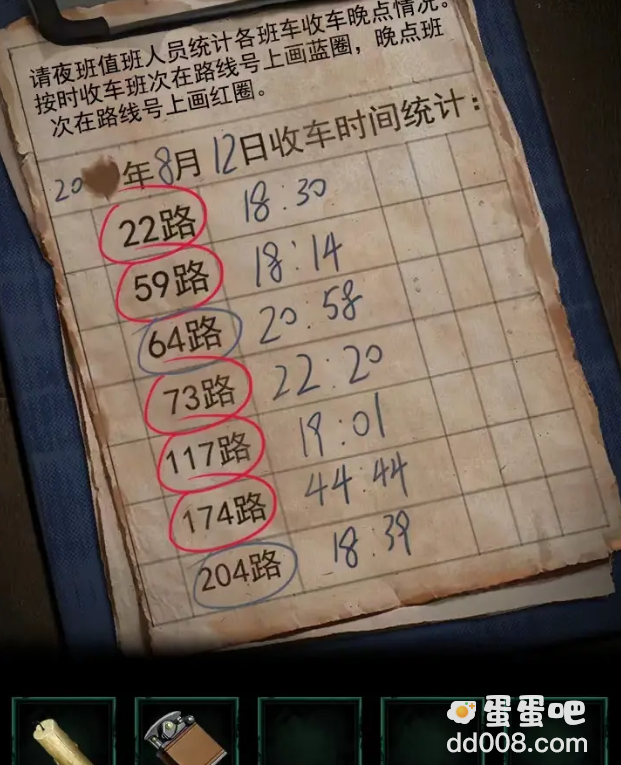 请夜班值班人员统计各班车收车晚点情况。
按时收车班次在路线号上画蓝圈，晚点班
次在路线号上画红圈。
20 年8月12日收车时间统计：
22路 18:30
59路 18:14
64路 20:58
73路 22:20
117路 19:01
174路 44:44
204路 18:39
蛋蛋吧
dd008.com